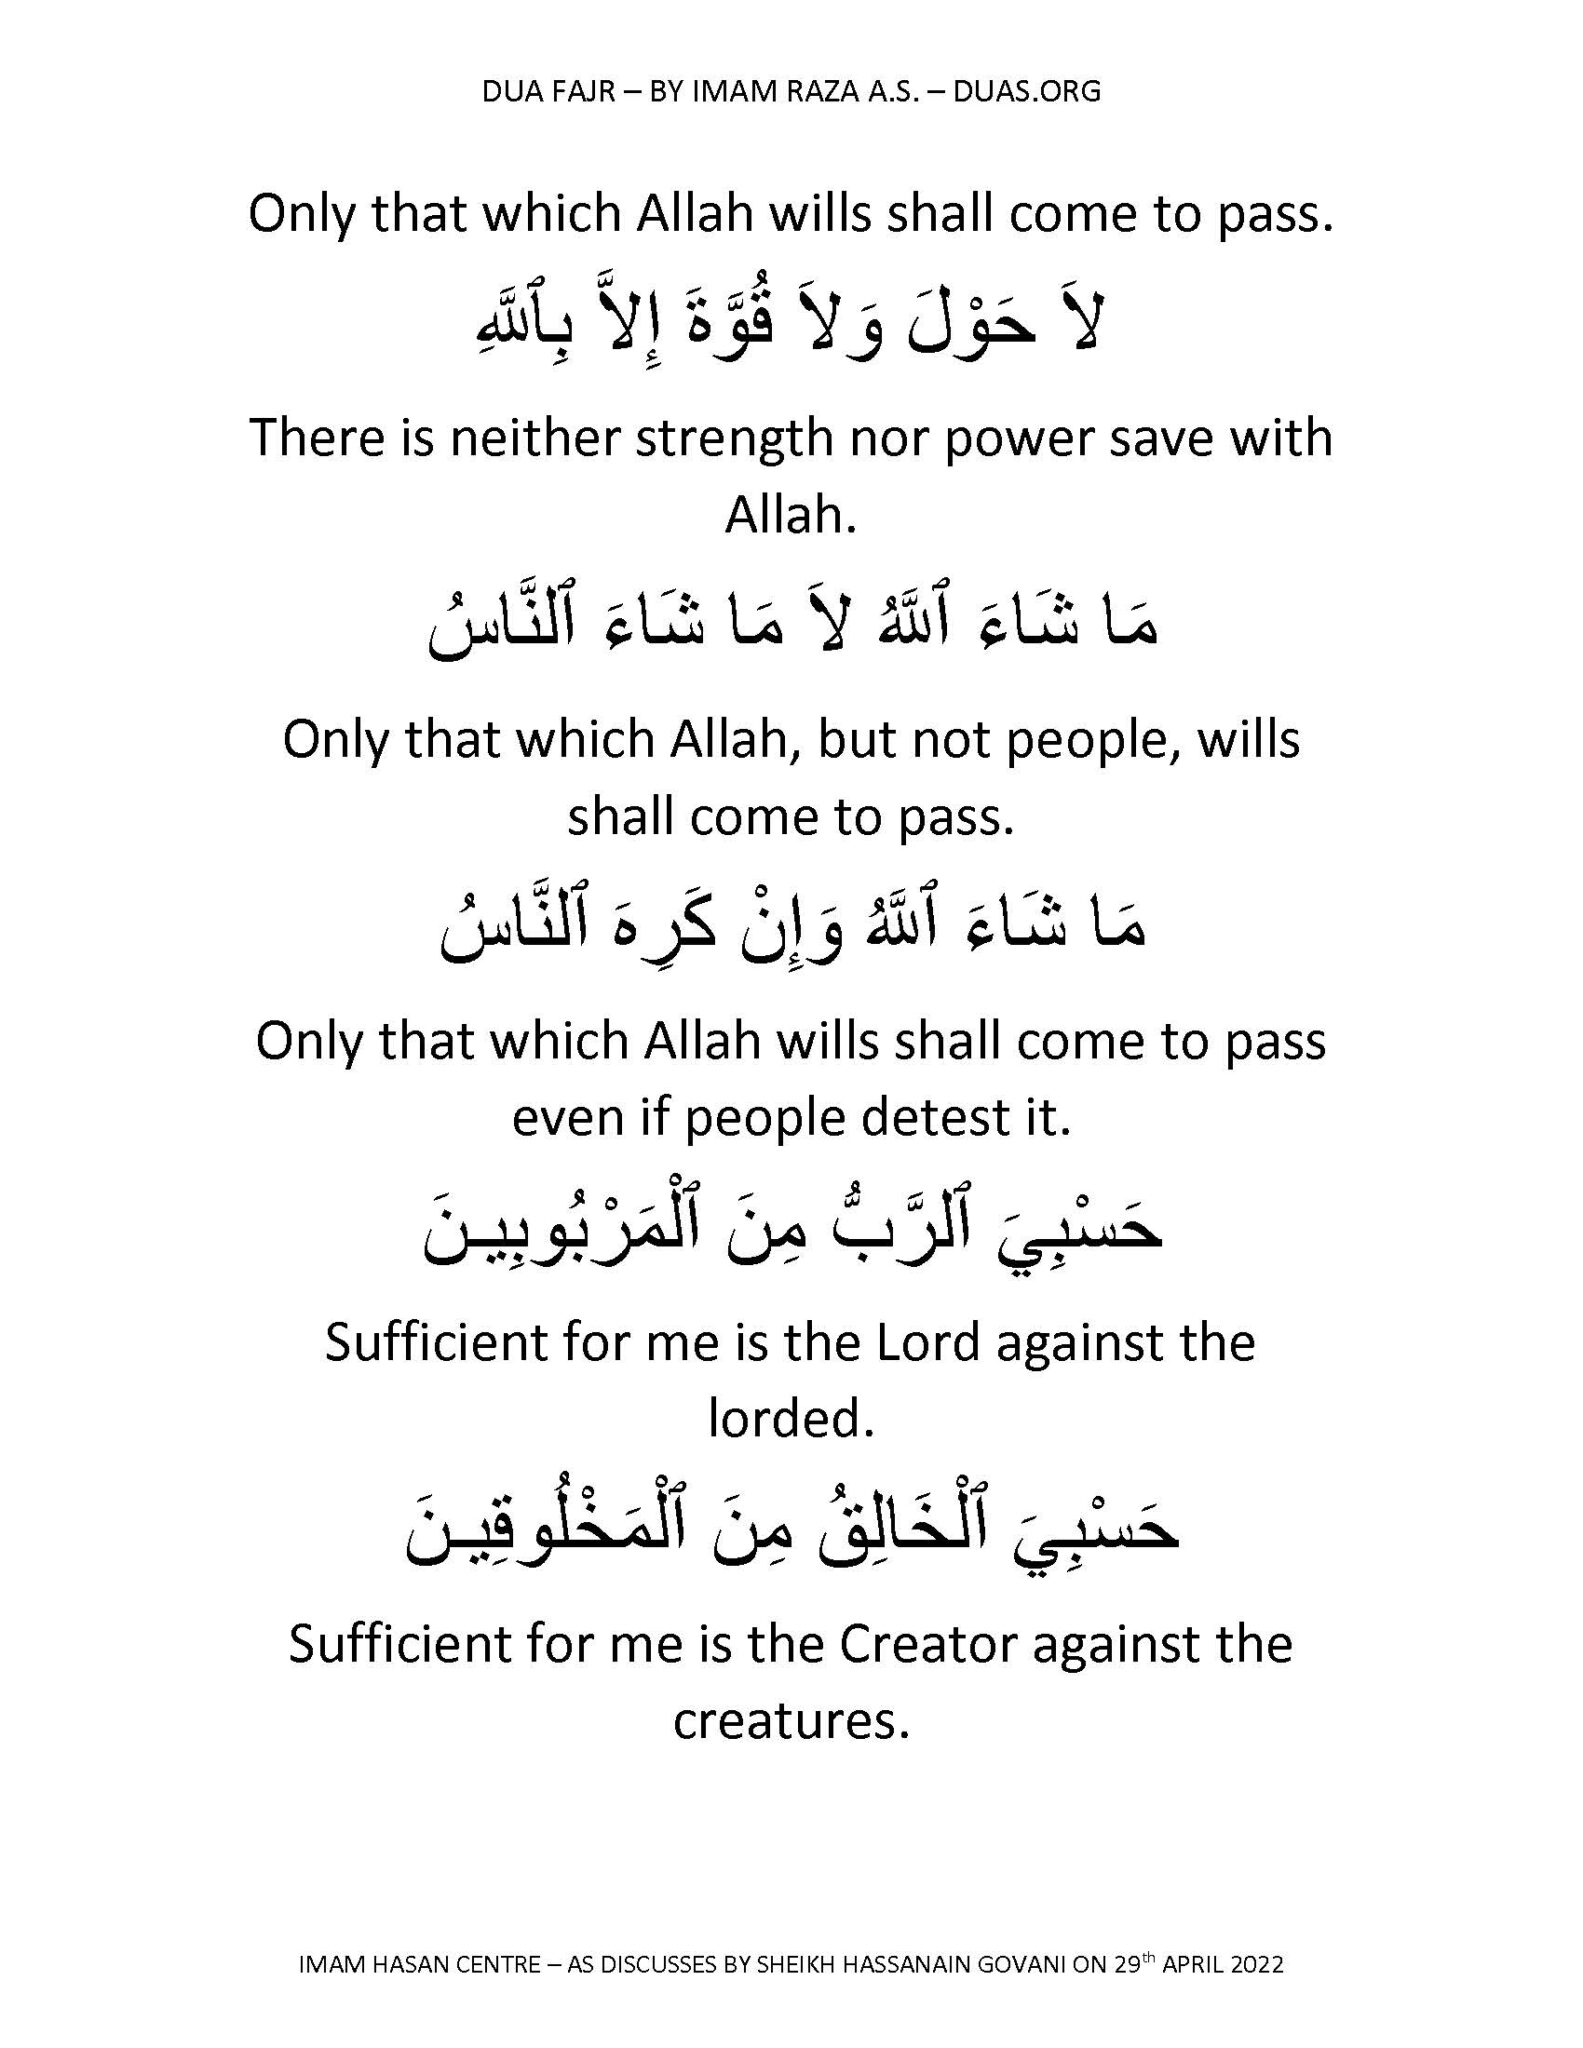 DUA FAJR – BY IMAM RAZA A.S. – DUAS.ORG
Only that which Allah wills shall come to pass.
لاَ حَوْلَ وَلاَ قُوَّةَ إِلاَّ بِٱللَّهِ
There is neither strength nor power save with
Allah.
مَا شَاءَ ٱللَّهُ لاَ مَا شَاءَ ٱلنَّاسُ
Only that which Allah, but not people, wills
shall come to pass.
مَا شَاءَ ٱللَّهُ وَإِنْ كَرِهَ ٱلنَّاسُ
Only that which Allah wills shall come to pass
even if people detest it.
حَسْبِيَ ٱلرَّبُّ مِنَ ٱلْمَرْبُوبِينَ
Sufficient for me is the Lord against the
lorded.
حَسْبِيَ ٱلْخَالِقُ مِنَ ٱلْمَخْلُوقِينَ
Sufficient for me is the Creator against the
creatures.
IMAM HASAN CENTRE – AS DISCUSSES BY SHEIKH HASSANAIN GOVANI ON 29th APRIL 2022